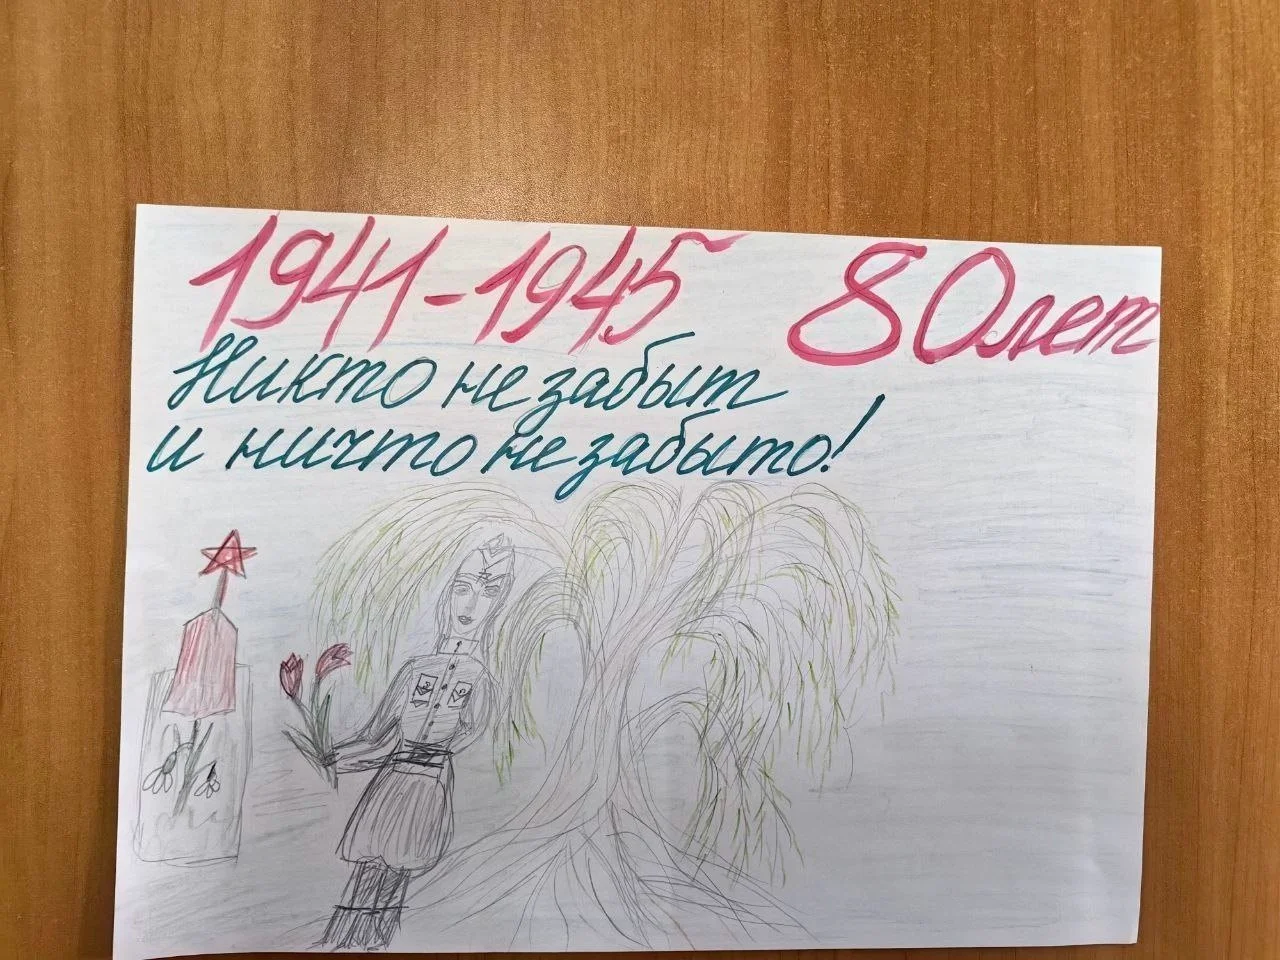 1941-1945 80лет
Никто не забыт
и ничто не забыто!